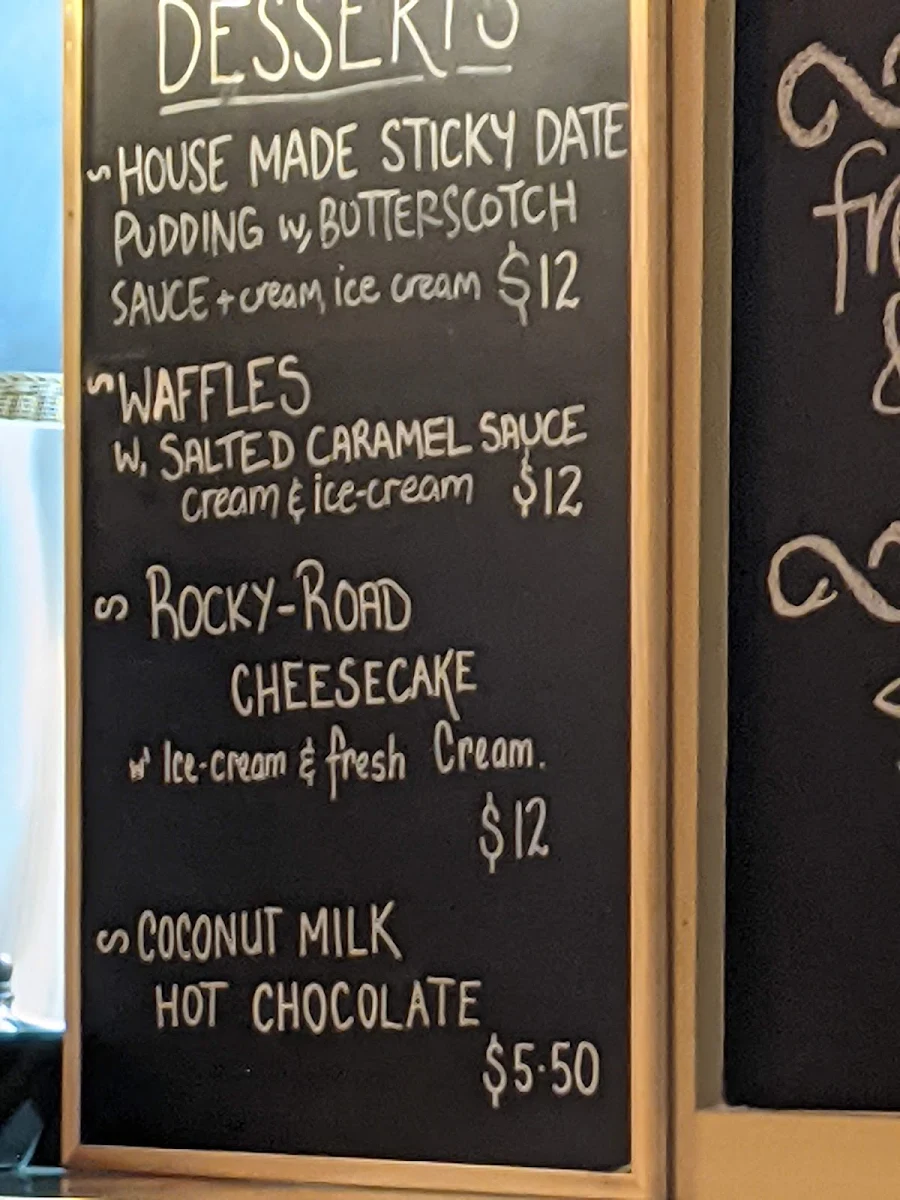 DESSERTS
HOUSE MADE STICKY DATE
PUDDING w, BUTTERSCOTCH
SAUCE + cream, ice cream $12
WAFFLES
W, SALTED CARAMEL SAUCE
cream & ice-cream $12
ROCKY-ROAD
CHEESECAKE
w' Ice-cream & fresh Cream.
$12
COCONUT MILK
HOT CHOCOLATE
$5.50